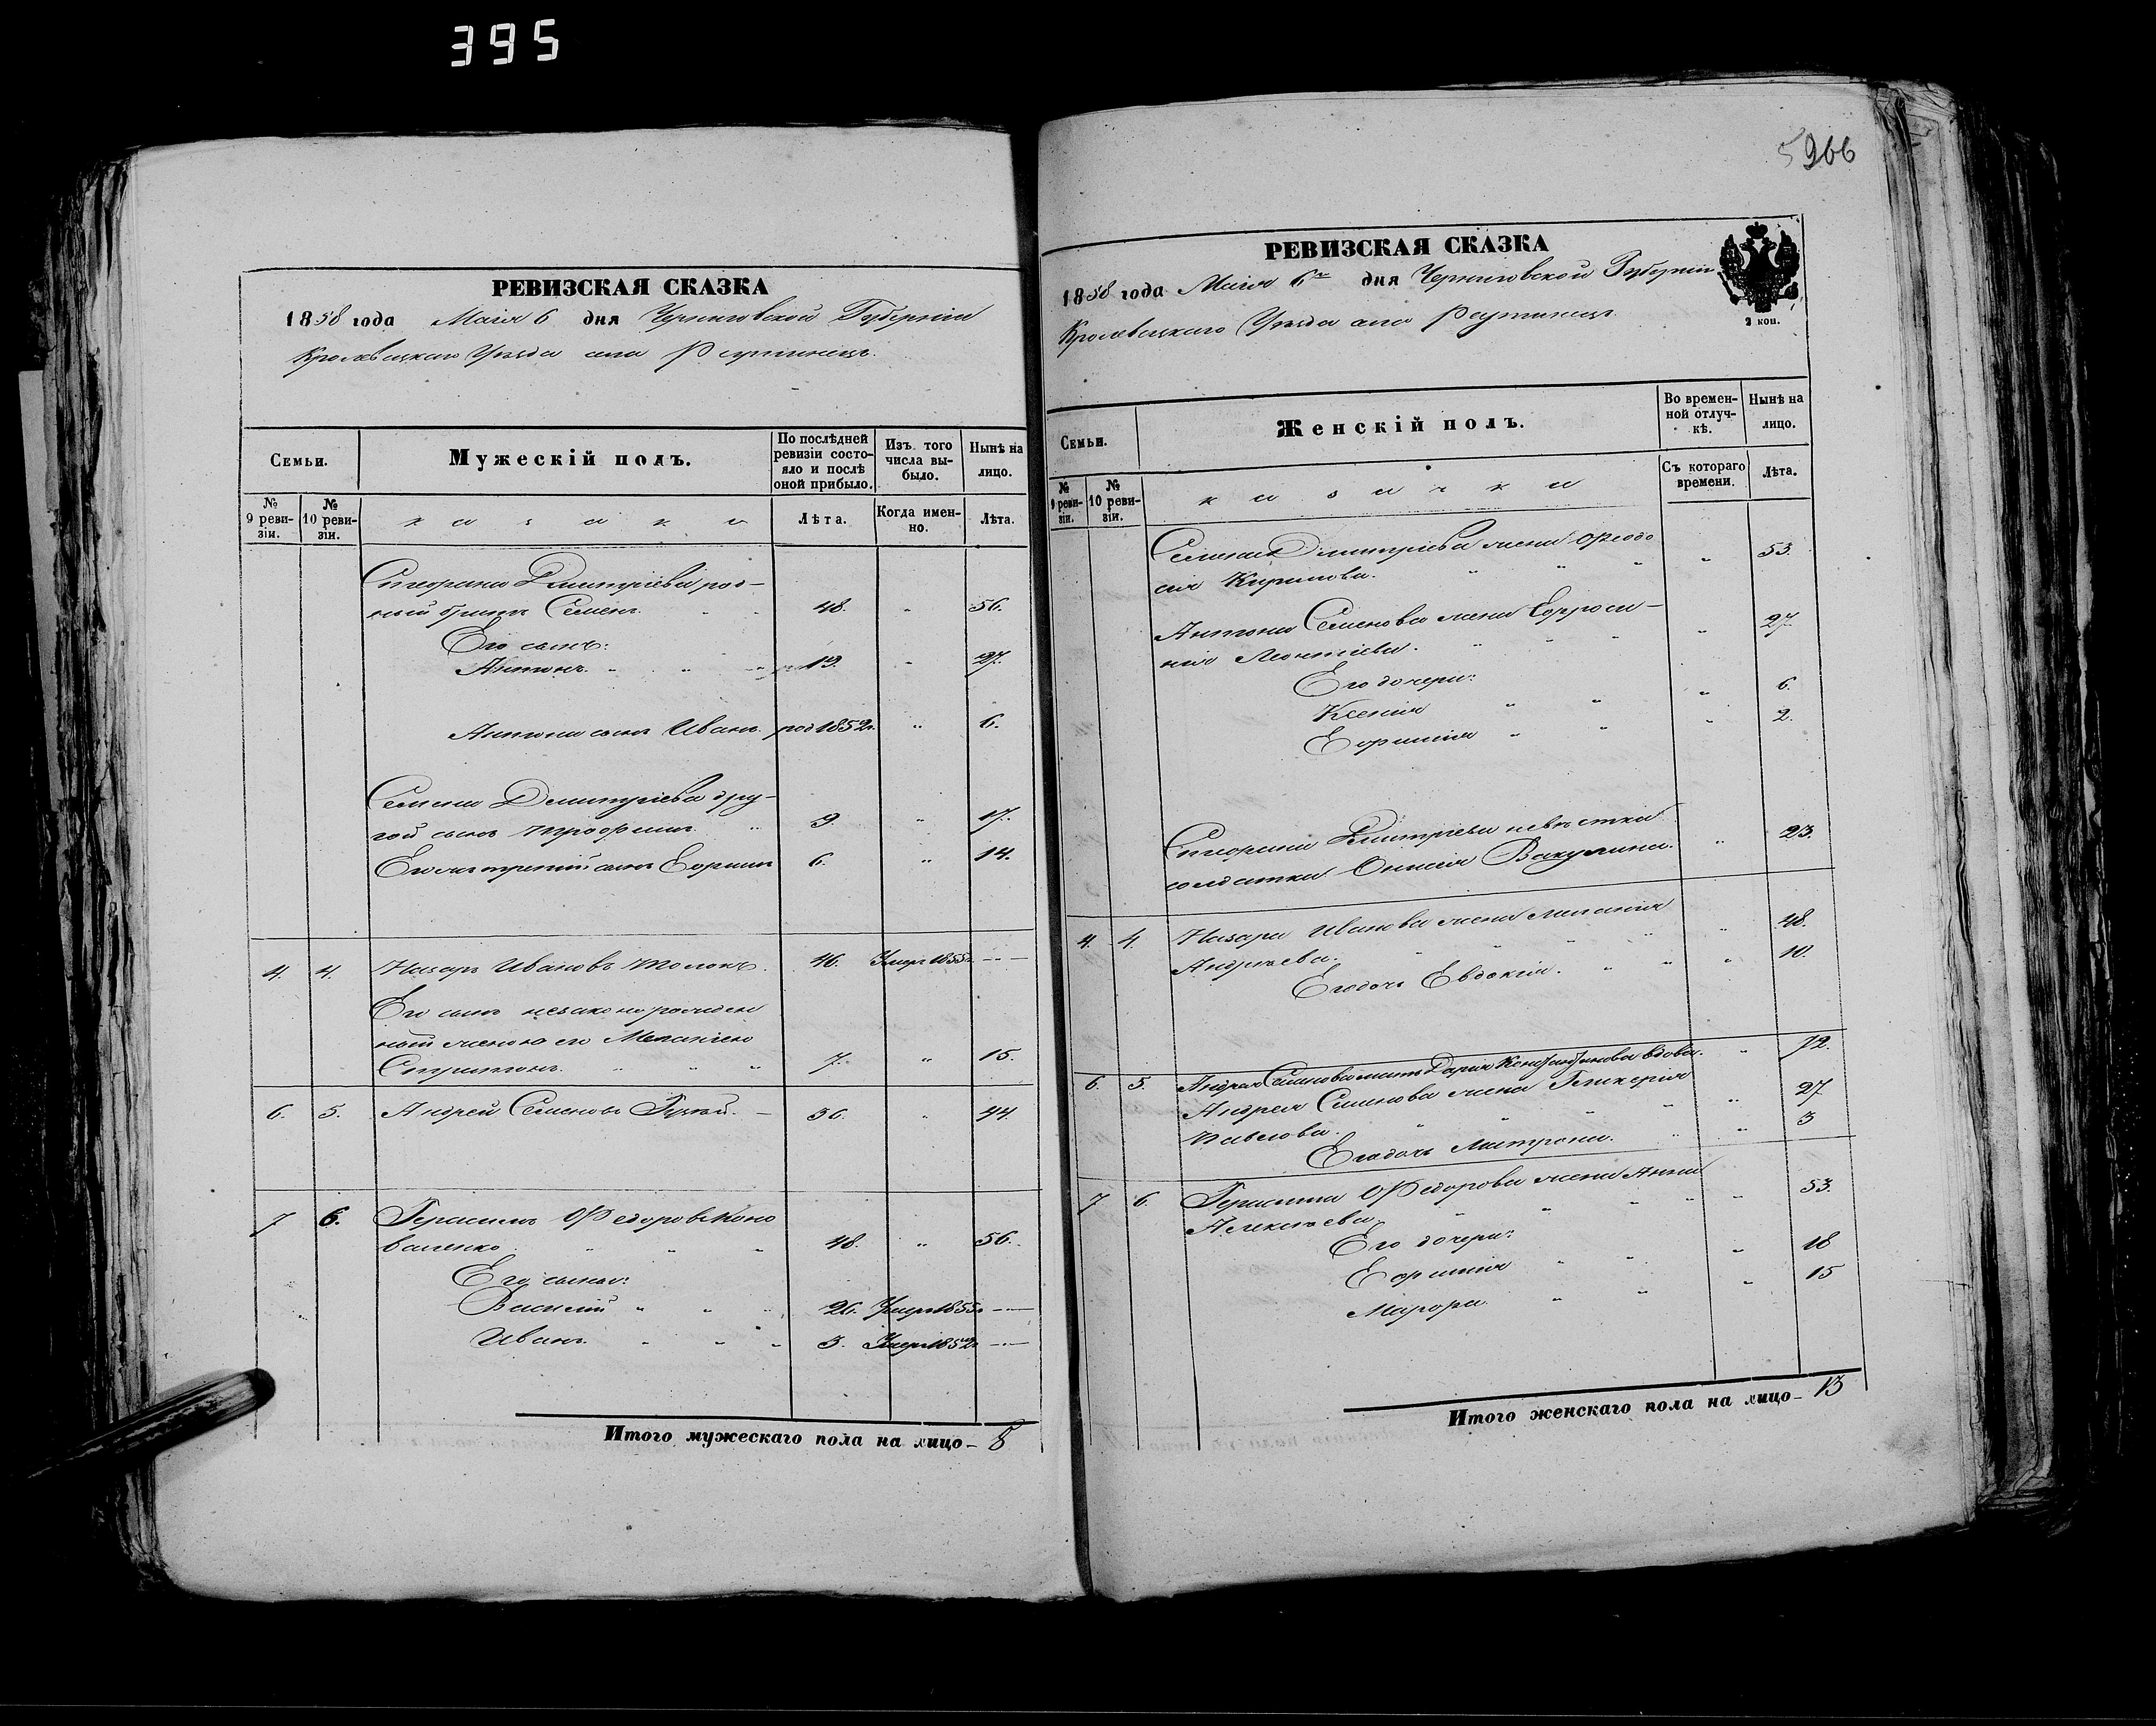 395
РЕВИЗСКАЯ СКАЗКА
1858 года Маія 6 дня Черниговской Губерніи
Кролевецкаго Уѣзда села Реутинецъ.
Семьи.
Мужескій полъ.
По послѣдней ревизіи состояло и послѣ оной прибыло.
Изъ того числа выбыло.
Нынѣ на лицо.
№ 9 ревизіи.
№ 10 ревизіи.
казаки
Лѣта.
Когда именно.
Лѣта.
Стефана Дмитріева род-
ный братъ Семенъ. 48. " 56.
Его сынъ:
Антонъ. 19. " 27.
Антона сынъ Иванъ. род 1852г. " 6.
Семена Дмитріева дру-
гой сынъ Трофимъ. 9. " 17.
Его же третій сынъ Ефримъ 6. " 14.
4. 4. Назаръ Ивановъ Толокъ. 46. Умеръ 1855г. —
Его сынъ незаконорожден
ный женою его Меланіею
Спиридонъ. 7. " 15.
6. 5. Андрей Семеновъ 36. " 44.
7 6. Герасимъ Федоровъ Коно
валенко. 48. " 56.
Его сыны:
Василій " 26. Умеръ 1855г. —
Иванъ. " 3. Умеръ 1852г. —
Итого мужескаго пола на лицо - 8
5966
РЕВИЗСКАЯ СКАЗКА
1858 года Маія 6го дня Черниговской Губерніи
Кролевецкаго Уѣзда села Реутинецъ
2 коп.
Семьи.
Женскій полъ.
Во временной отлучкѣ.
Нынѣ на лицо.
№ 9 ревизіи.
№ 10 ревизіи.
казачки
Съ котораго времени.
Лѣта.
Семена Дмитріева жена Феодо
сія Кирилова. " 53.
Антона Семенова жена Ефроси-
нія Леонтіева. " 27.
Его дочери:
Ксенія " 6.
Ефимія " 2.
Стефана Дмитріева невѣстка
солдатка Онисія Вакулина. " 23.
4. 4. Назара Иванова жена Меланія
Андрѣева. " 48.
Его дочь Евдокія. " 10.
6. 5. Андрея Семенова мать Дарія Константинова вдова. " 72.
Андрея Семенова жена Гликерія
Павлова. " 27
Его дочь Матрона. " 3
7 6. Герасима Федорова жена Анна
Алексѣева. " 53.
Его дочери:
Ефимія " 18
Марфа. " 15
Итого женскаго пола на лицо - 13